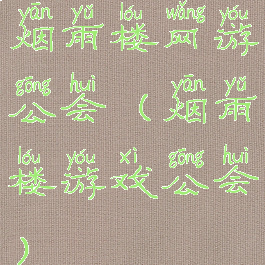 yān yǔ lóu wǎng yóu
烟雨楼网游
gōng huì yān yǔ
公会（烟雨
lóu yóu xì gōng huì
楼游戏公会
）